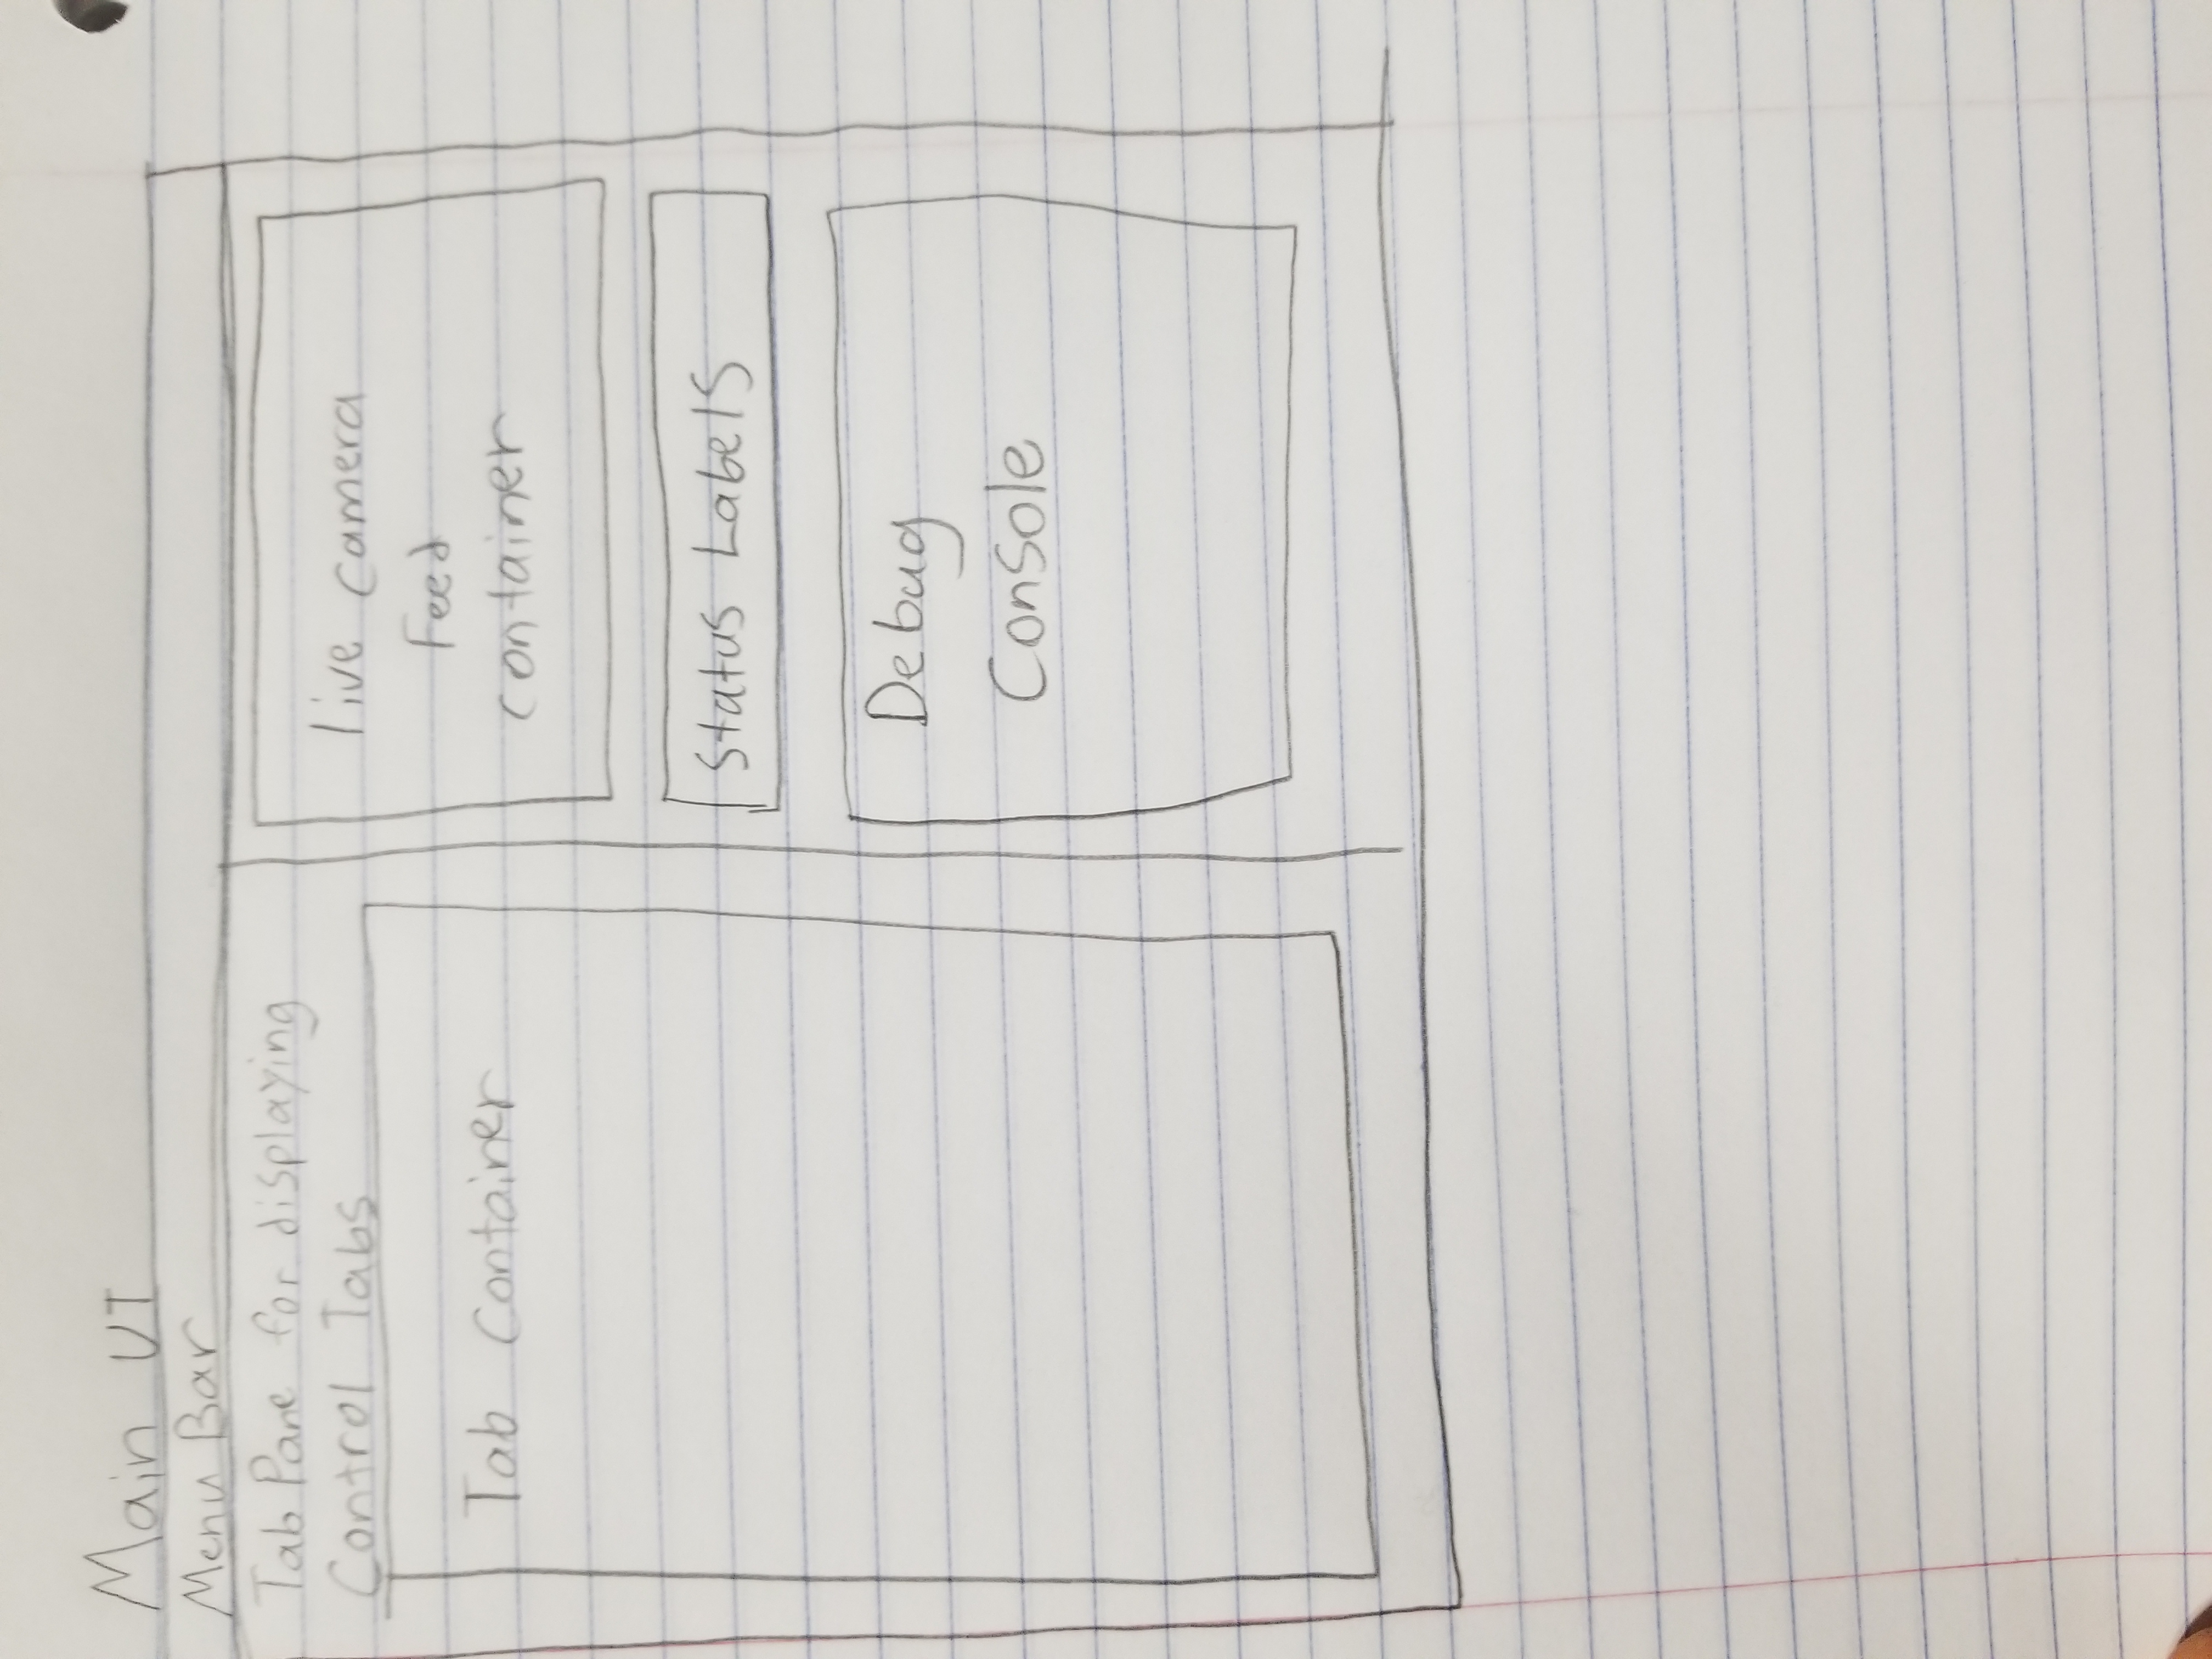 Main UI
Menu Bar
Tab Pane for displaying
Control Tabs
Tab Container
live camera
Feed
container
Status Labels
Debug
Console